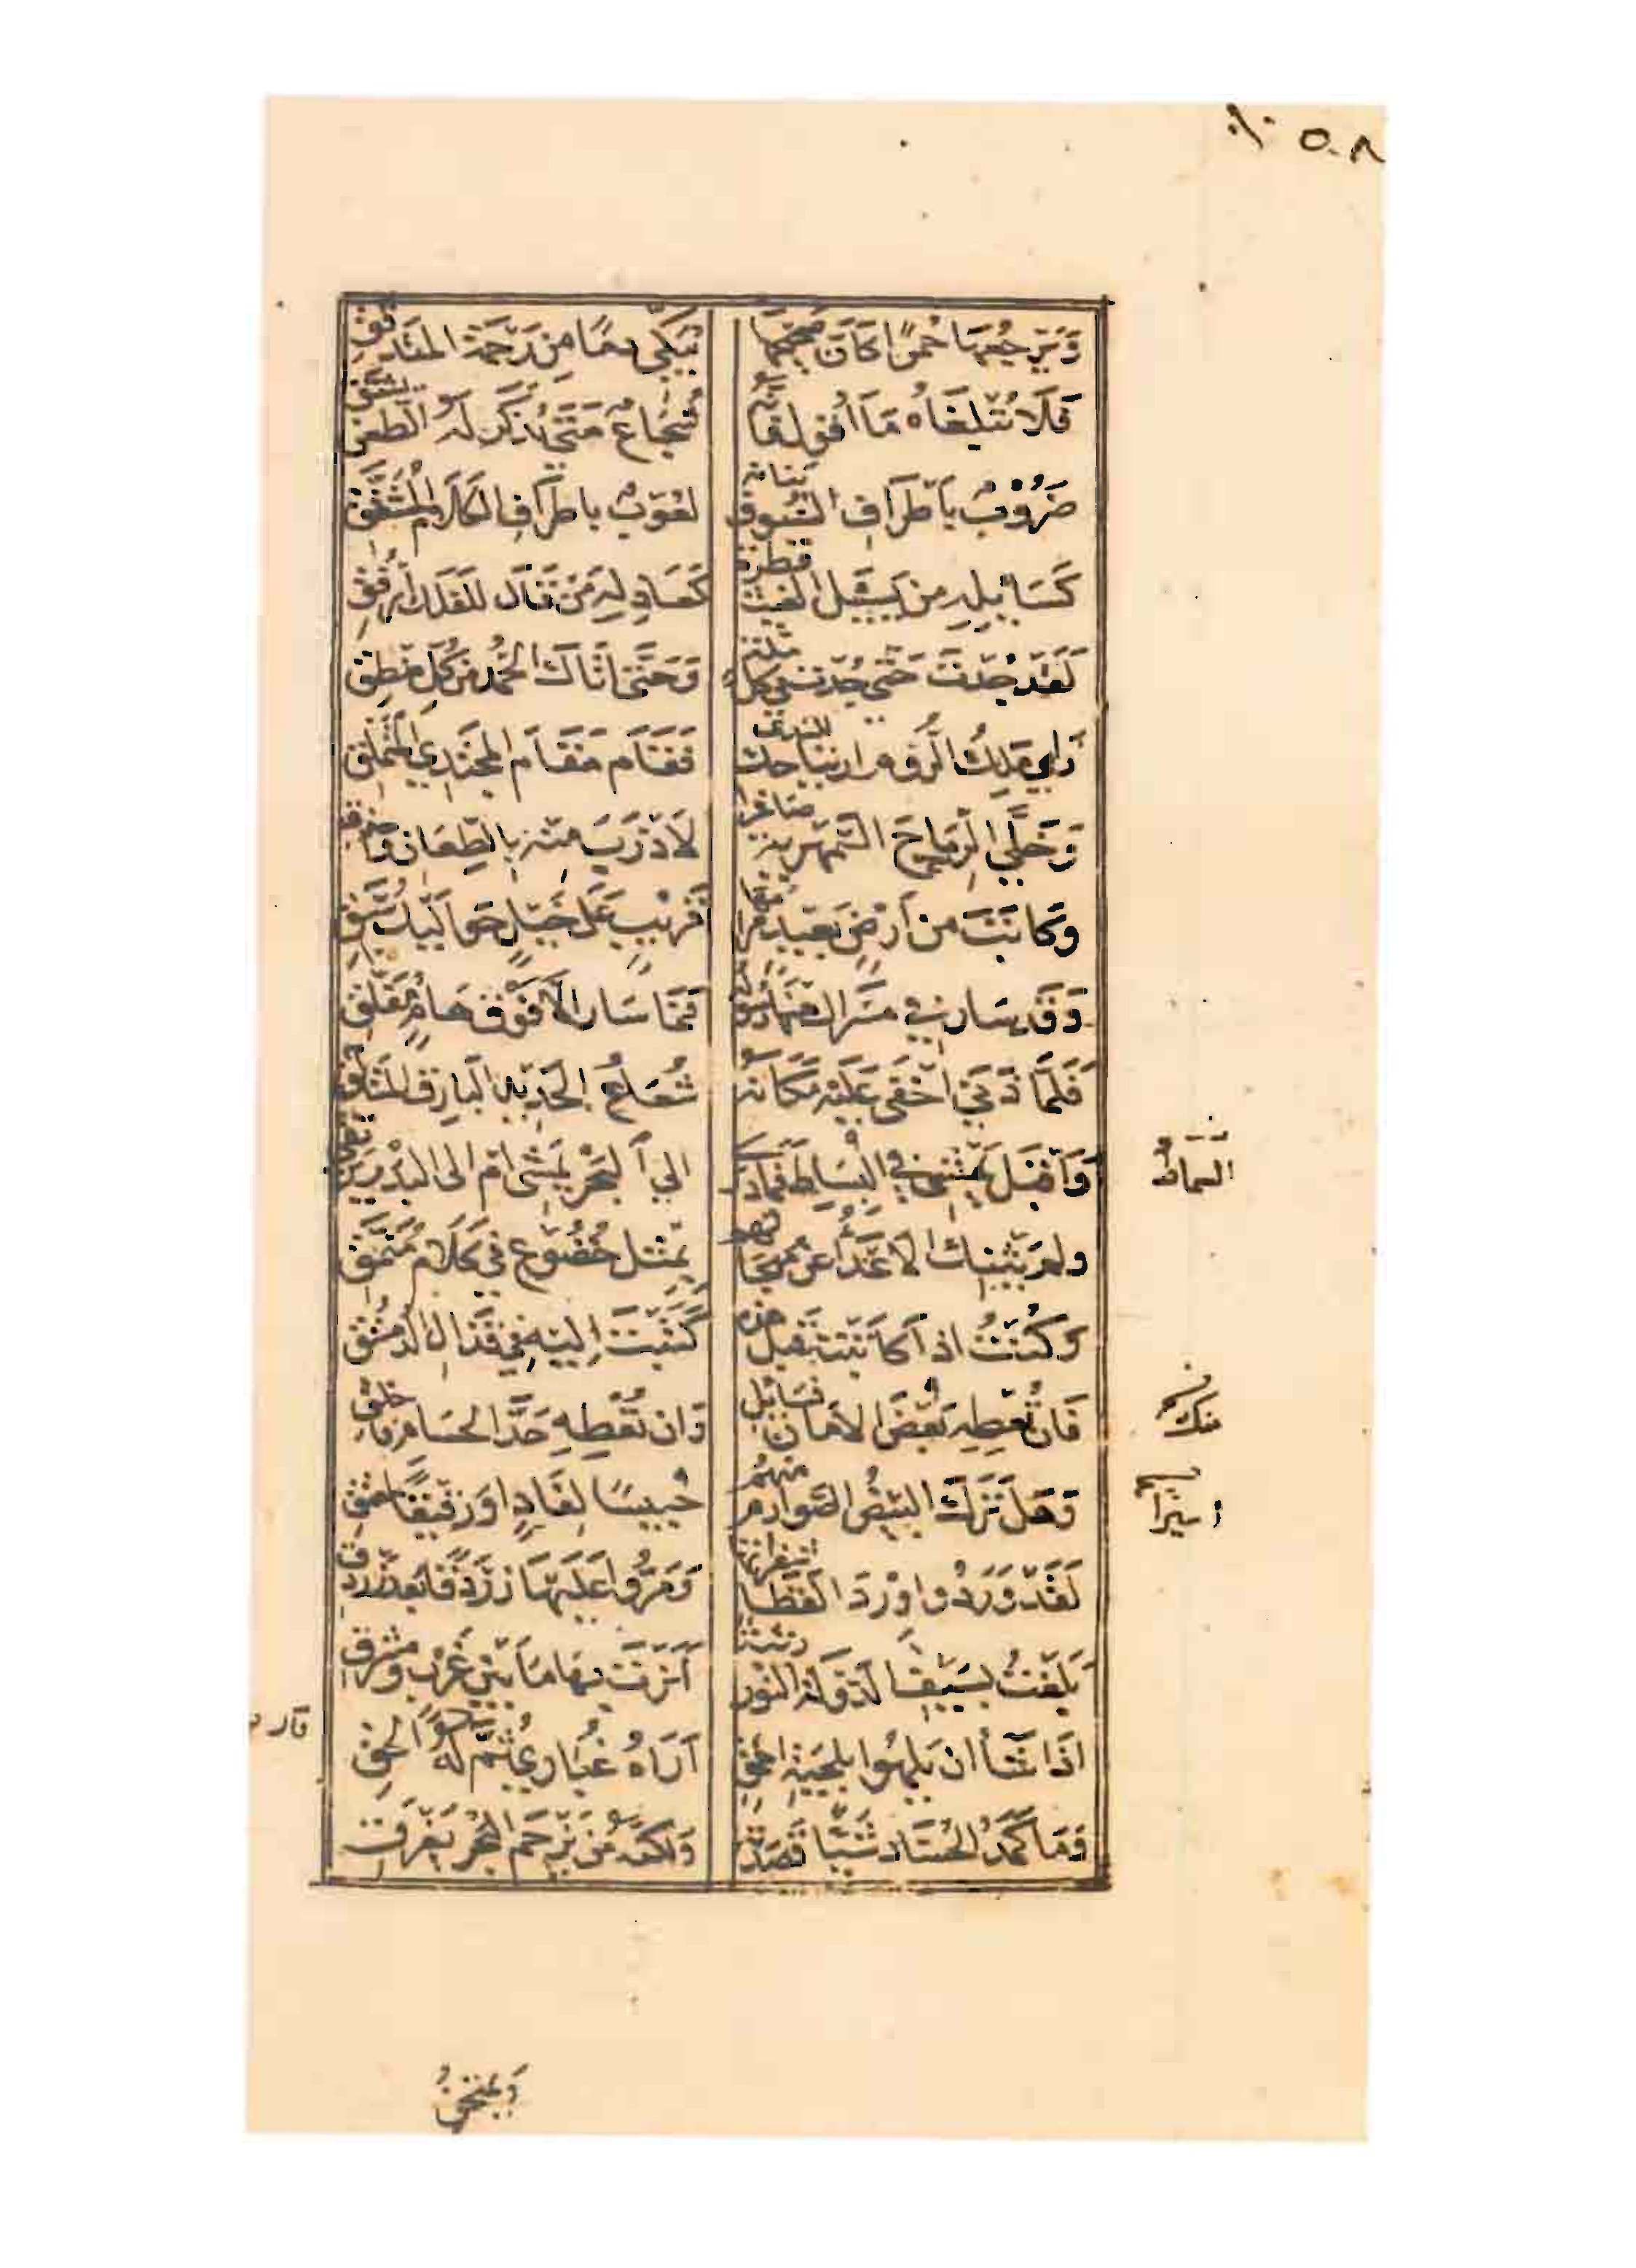 ٨ ٥٠
وَيَرجِعُهَا حُمْرًا كَأَنَّ صَحِيحَهَا تُبَكِّي دمًا مِن رَحْمَةِ المُتَدَقِّقِ
فَلَا تُبْلِغَاهُ مَا أَقُولُ فَإِنَّهُ شُجَاعٌ مَتَى يُذْكَرْ لَهُ الطَّعْنُ يَشْتَقِ
ضَرُوبٌ بِأَطْرَافِ السُّيُوفِ بَنَانُهُ لَعُوبٌ بِأَطْرَافِ الكَلَامِ المُشَقَّقِ
كَسَائِلِهِ مَن يَسْأَلُ الغَيْثَ قَطْرَةً كَعَاذِلِهِ مَنْ قَالَ لِلفَلَكِ ارْفُقِ
لَقَدْ جُدْتَ حَتَّى جُدْتَ فِي كُلِّ مِلَّةٍ وَحَتَّى أَتَاكَ الحَمْدُ مِن كُلِّ مَنْطِقِ
رَأى مَلِكُ الرُّومِ ارتِيَاحَكَ لِلنَّدَى فَقَامَ مَقَامَ المُجْتَدِي المُتَمَلِّقِ
وَخَلَّى الرِّمَاحَ السَّمْهَرِيَّةَ صَاغِرًا لِأَدْرَبَ مِنْهُ بِالطِّعَانِ وَأَحْذَقِ
وَكَاتَبَ مِن أَرْضٍ بَعِيدٍ مَرَامُهَا قَرِيبٍ عَلَى خَيْلٍ حَوَالَيْكَ سُبَّقِ
وَقَد سَارَ فِي مَسْرَاكَ مِنْهَا رَسُولُهُ فَمَا سَارَ إِلَّا فَوْقَ هَامٍ مُفَلَّقِ
فَلَمَّا دَنَى أَخْفَى عَلَيْهِ مَكَانَهُ شُعَاعُ الحَدِيدِ البَارِقِ المُتَأَلِّقِ
وَأَقْبَلَ يَمْشِي فِي البِسَاطِ فَمَا دَرَى إِلى البَحْرِ يَمْشِي أَمْ إِلى البَدْرِ يَرْتَقِي
السِّمَاطِ
وَلم يَثْنِكَ الأَعْدَاءُ عَن مُهَجَاتِهِم بِمِثْلِ خُضُوعٍ فِي كَلَامٍ مُنَمَّقِ
وَكُنْتَ إِذَا كَاتَبْتَهُ قَبْلَ هَذِهِ كَتَبْتَ إِلَيْهِ فِي قَذَالِ الدُّمُسْتُقِ
فَإِن تُعْطِهِ بَعْضَ الأَمَانِ فَسَائِلٌ وَإِن تُعْطِهِ حَدَّ الحُسَامِ فَأَخْلِقِ
منك
وَهَلْ تَرَكَ البِيضُ الصَّوَارِمُ مِنْهُمُ حَبِيسًا لِفَادٍ أَوْ رَقِيقًا لِمُعْتِقِ
أسيرًا
لَقَدْ وَرَدُوا وِرْدَ القَطَا شَفَرَاتِهَا وَمَرُّوا عَلَيْهَا زَرْدَقًا بَعْدَ زَرْدَقِ
بَلَغْتُ بِسَيْفِ الدَّوْلَةِ النُّورِ رُتْبَةً أَنَرْتُ بِهَا مَا بَيْنَ غَرْبٍ وَمَشْرِقِ
إِذَا شَاءَ أَن يَلهُو بِلِحْيَةِ أَحْمَقٍ أَرَاهُ غُبَارِي ثُمَّ قَالَ لَهُ الحَقِ
وَمَا كَمَدُ الحُسَّادِ شَيْئًا قَصَدْتُهُ وَلَكِنَّهُ مَن يَزْحَمِ البَحْرَ يَغْرَقِ
وَيَمتَحِنُ